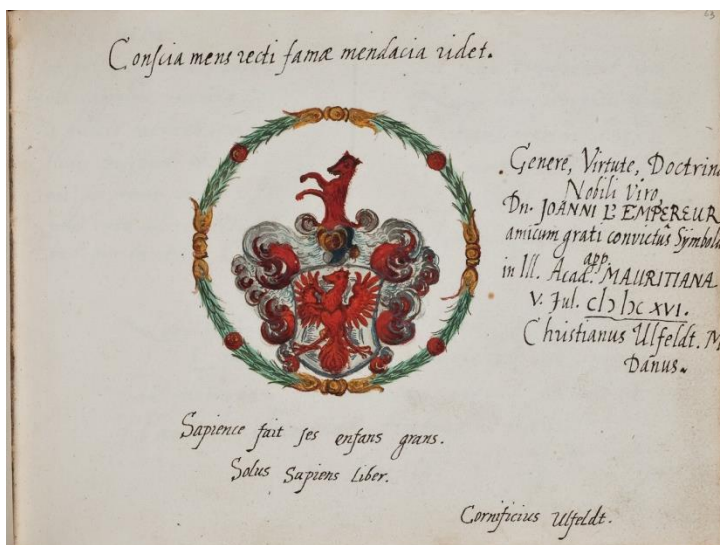 Conscia mens recti famæ mendacia ridet.
Genere, Virtute, Doctrin
Nobili Viro,
Dn. JOANNI L'EMPEREUR
amicum grati convictûs Symbolu
app.
in Ill. Acad. MAURITIANA
V. Jul. cIↄ Iↄc XVI.
Christianus Ulfeldt. M
Danus.
Sapience fait ses enfans grans.
Solus Sapiens Liber.
Cornificius Ulfeldt.